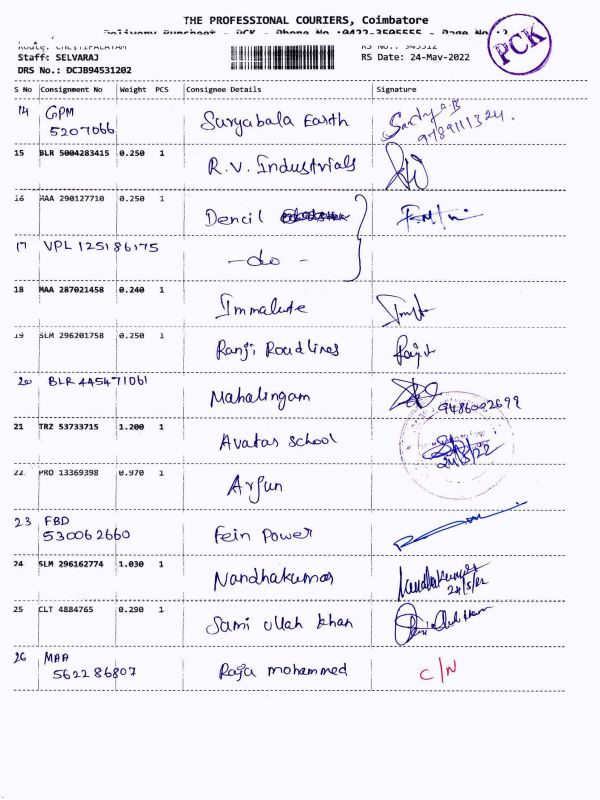 THE PROFESSIONAL COURIERS, Coimbatore
Delivery Runsheet - PCK - Phone No :0422-3505555 - Page No :2
PCK
Route: CHETTIPALAYAM
RS No.: 945312
Staff: SELVARAJ
RS Date: 24-May-2022
DRS No.: DCJB94531202
S No Consignment No Weight PCS Consignee Details Signature
14 GPM 5207066 Suryabala Earth
9789111324.
15 BLR 5004283415 0.250 1 R.V. Industrials
16 MAA 290127710 0.250 1 Dencil
17 VPL 125186175 -do-
18 MAA 287021458 0.240 1 Immalute
19 SLM 296201758 0.250 1 Ranji Roadlines
20 BLR 445471061 Mahalingam
9486002699
21 TRZ 53733715 1.200 1 Avatar School
24/5/22
22 PRO 13369398 0.970 1 Arjun
23 FBD 530062660 Fein Power
24 SLM 296162774 1.030 1 Nandhakumar Nandhakumar
24/5/22
25 CLT 4884765 0.290 1 Sami ullah khan
26 MAA 562286807 Raja mohammed C/N